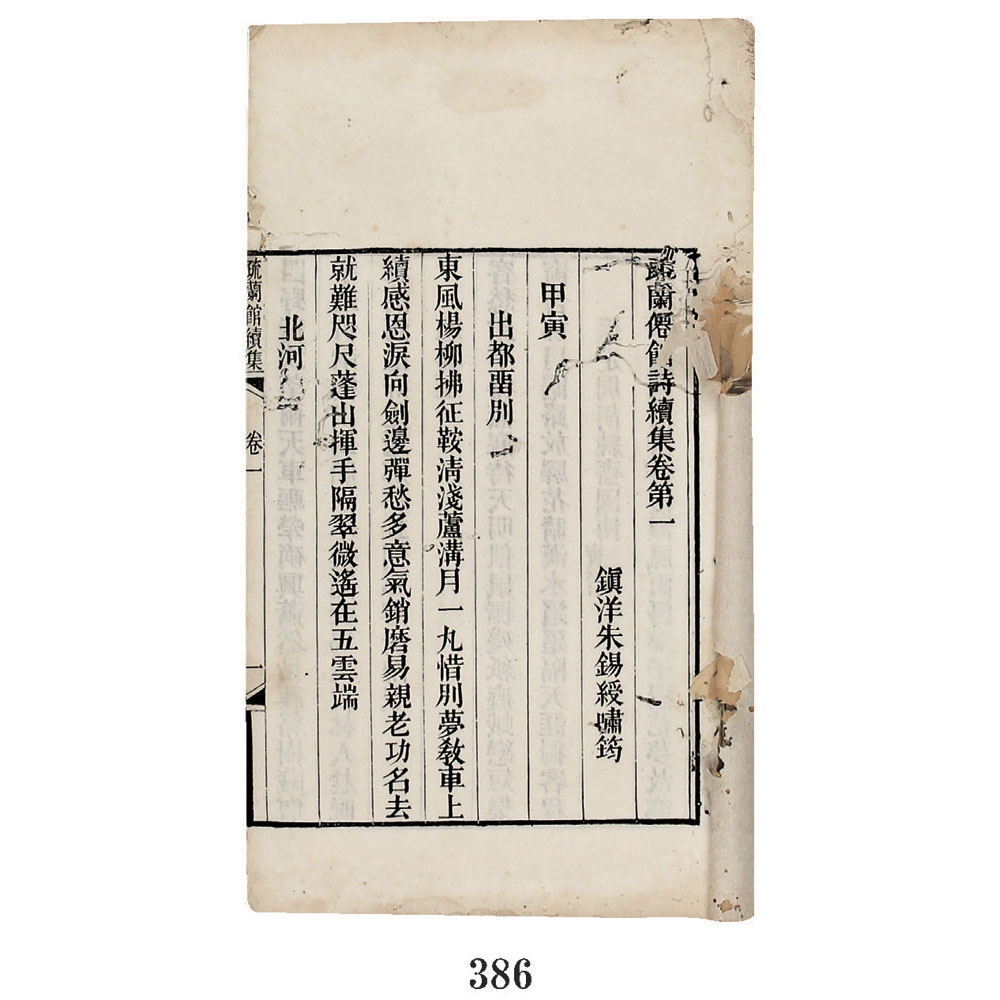 疏蘭僊館詩續集卷第一
鎮洋朱錫綬嘯筠
甲寅
出都畱別
東風楊柳拂征鞍淸淺蘆溝月一丸惜別夢教車上
續感恩淚向劍邊彈愁多意氣銷磨易親老功名去
就難咫尺蓬出揮手隔翠微遙在五雲端
北河
疏蘭館續集
卷一
一
386